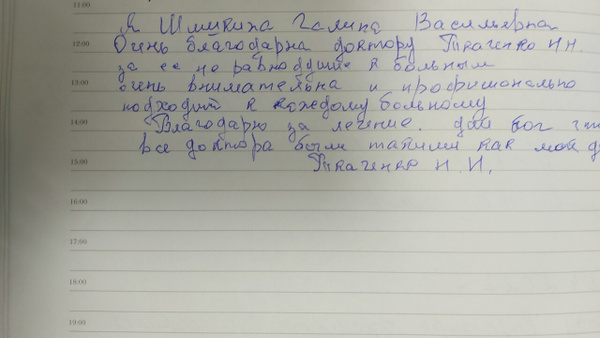 11:00
Я Шмыкина Галина Васильевна
12:00
Очень благодарна доктору Ткаченко Н.Н.
за ее не равнодушие к больным
13:00
очень внимательна и професионально
подходит к каждому больному
14:00
Благодарю за лечение. дай бог
все доктора были такими как мой
15:00
Ткаченко Н.И.
16:00
17:00
18:00
19:00